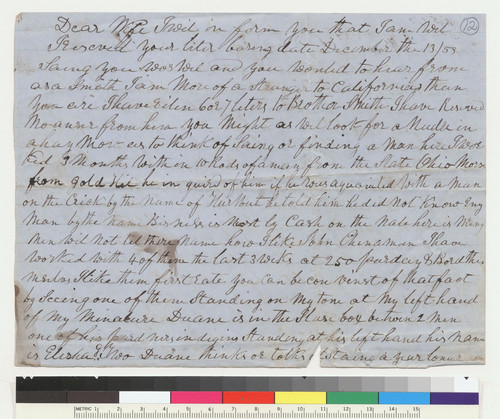 Dear Wife I wil in form you that I am Wel (12)
I Received your leter baring date December the 13/53
Saing you wors Wel and you wonted to hear from
asa Smith I am More of a stranger to California than
you are I have riten 6 or 7 leters to Brother Smith I have Received
No anser from him you Might as wel look for a Nedle in
a hay Mow as to think of Saing or finding a Man here I
3 Months with in roads of a man from the State Ohio
from gold Hil he in quired of him if he wors aquainted with a man
on the Crick by the Name of Hurlbut he told him he did Not Know Eny
Man by the name Bisness is Most by Cash on the Nale here is Many
Men Wil Not tel there Name how I like John Chinaman I have
Worked with 4 of them the last 3 weks at 250 per day & Bord
I like them first rate you can be con vinst of that fact
by Seeing one of them Standing on My at My left hand
of My Minature Duane is in the Same box betwen 2 Men
one of his pardners in diging Standing at his left hand his Name
is Elisha Duane thinks or talks of staing a year longer
METRIC 1 2 3 4 5 6 7 8 9 10 11 12 13 14 15